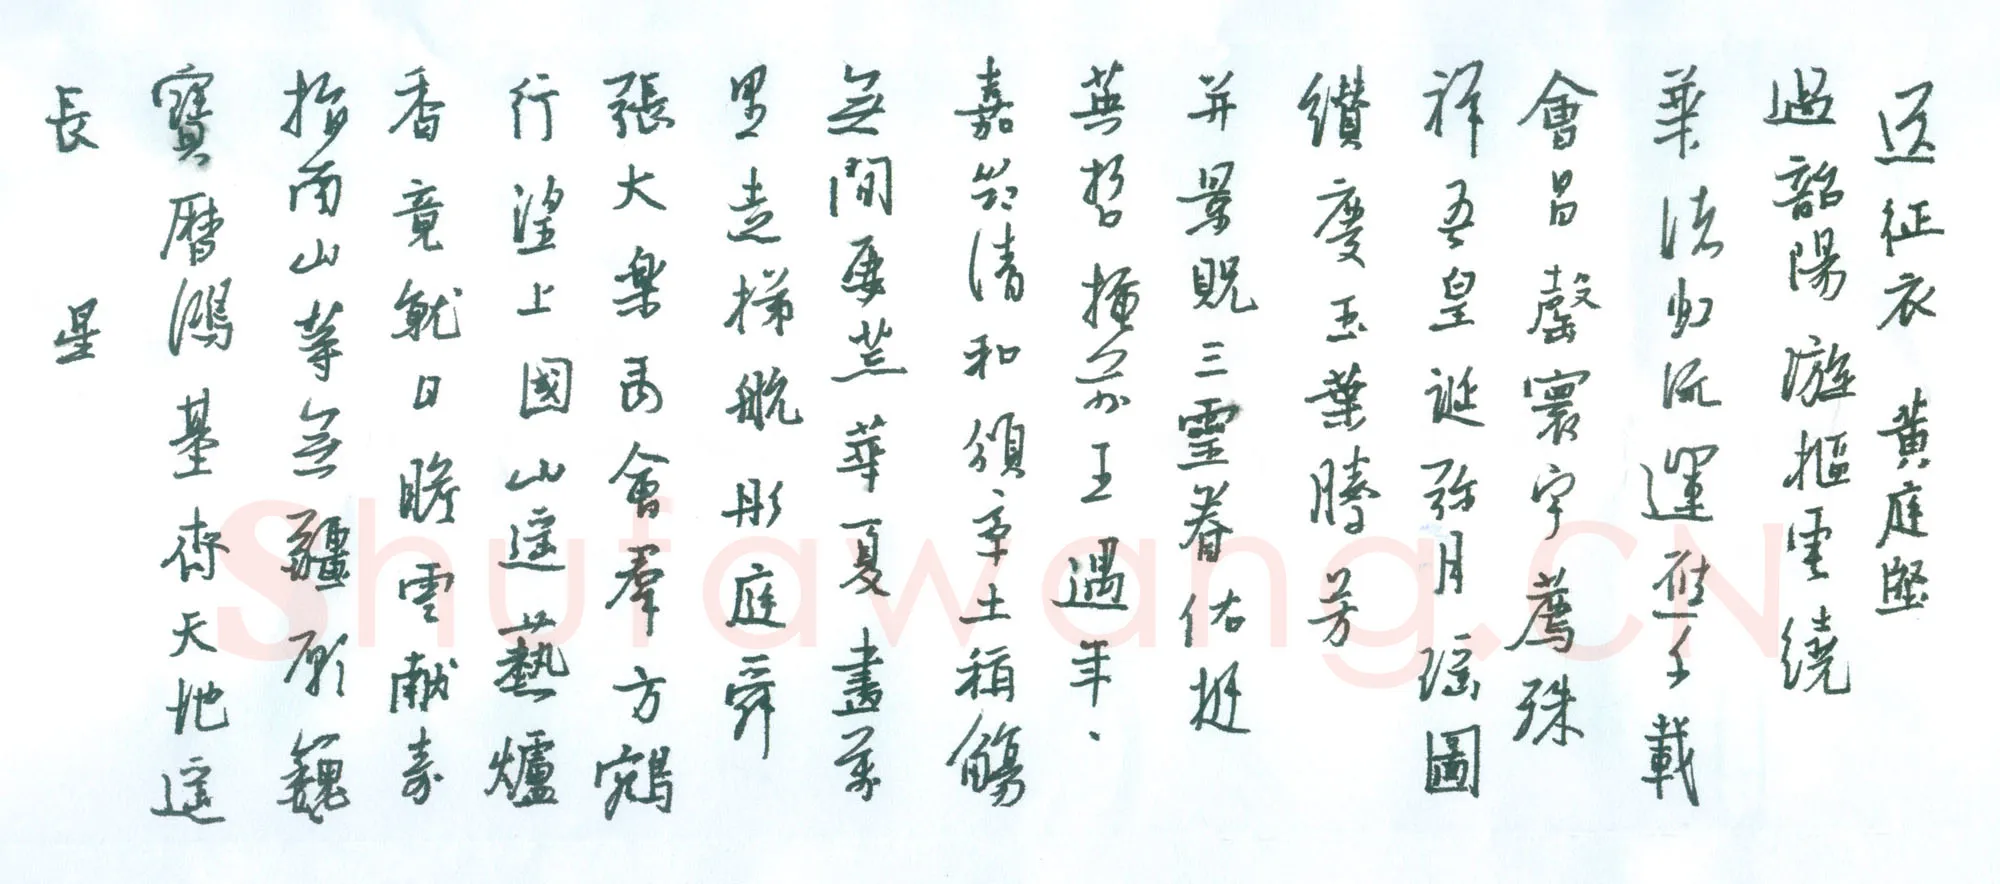 送征衣 黃庭堅
過韶陽漩摳電繞
華渚虹流運應千載
會昌罄寰宇薦殊
祥吾皇誕弥月瑶圖
纘慶玉葉騰芳
并景貺三靈眷佑挺
英哲掩前王遇年、
嘉節清和頒率土稱觴
無間要荒華夏盡萬
里走梯航彤庭舜
張大樂禹會羣方鵷
行望上國山遥爇爐
香竟就日瞻雲献壽
指南山等無疆願巍
寶曆鴻基齊天地遥
長 星
Shufawang.CN